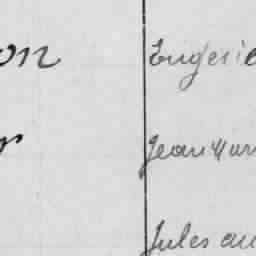 on Eugenie
r Jean Mar
Jules au